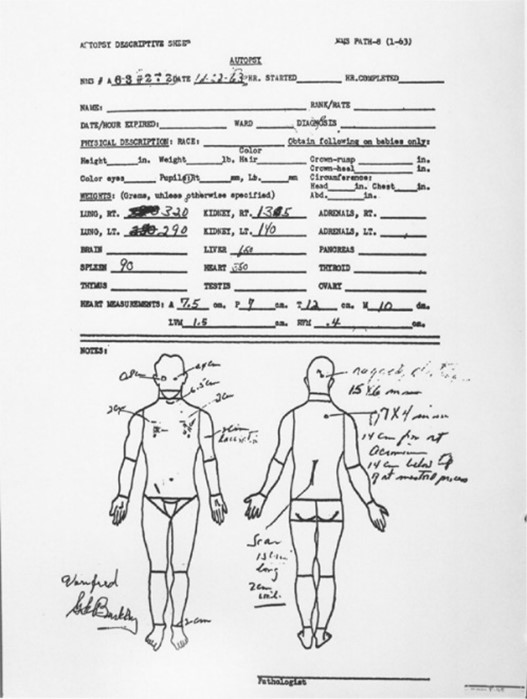 AUTOPSY DESCRIPTIVE SHEET NMS PATH-8 (1-63)
AUTOPSY
NMS # A 63 #272 DATE 11-22-63 HR. STARTED HR. COMPLETED
NAME: RANK/RATE
DATE/HOUR EXPIRED: WARD DIAGNOSIS
PHYSICAL DESCRIPTION: RACE: Obtain following on babies only:
Color
Height in. Weight lb. Hair Crown-rump in.
Crown-heel in.
Color eyes Pupils:Rt mm, Lt. mm Circumference:
Head in. Chest in.
Abd. in.
WEIGHTS: (Grams, unless otherwise specified)
LUNG, RT. 320 KIDNEY, RT. ADRENALS, RT.
LUNG, LT. 290 KIDNEY, LT. 140 ADRENALS, LT.
BRAIN LIVER PANCREAS
SPLEEN 90 HEART 350 THYROID
THYMUS TESTIS OVARY
HEART MEASUREMENTS: A 7.5 cm. P 7 cm. T 12 cm. M 10 cm.
LVM 1.5 cm. RVM .4 cm.
NOTES:
ragged
15 X 6 mm
7 X 4 mm
14 cm from rt
acromion
14 cm below tip
of rt mastoid process
Scar
13 cm
long
2 cm
Verified
GG Burkley
Pathologist